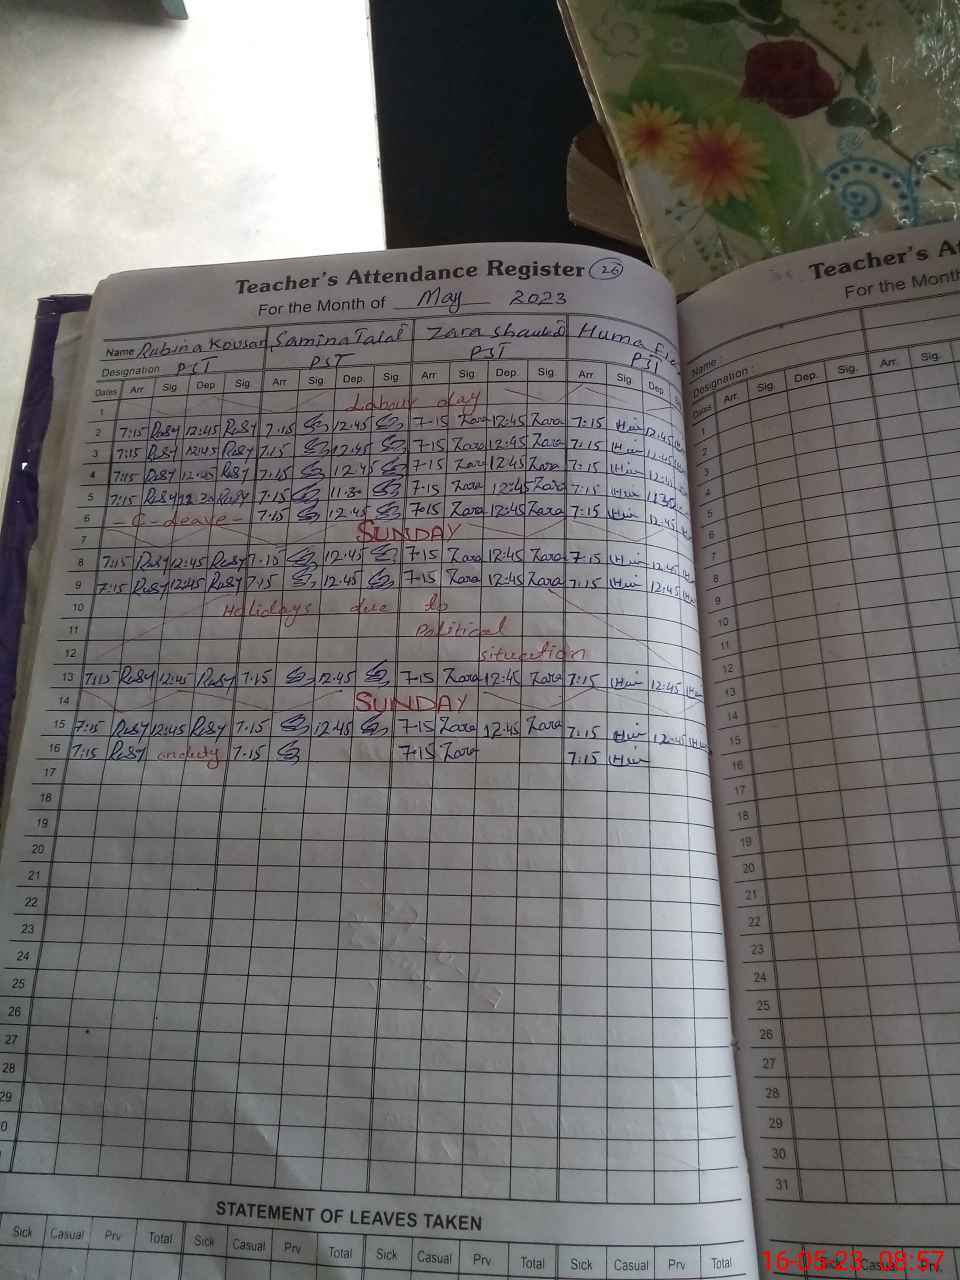 Teacher's Attendance Register 26
For the Month of May 2023
Name Rubina Kousar Samina Talat Zara Shaukat Huma
Designation PST PST PST PST
Dates Arr. Sig. Dep. Sig. Arr. Sig. Dep. Sig. Arr. Sig. Dep. Sig. Arr. Sig. Dep.
1 Labour day
2 7:15 Ruby 12:45 Ruby 7:15 12:45 7-15 Zara 12:45 Zara 7:15 12:45
3 7:15 Ruby 12:45 Ruby 7:15 12:45 7-15 Zara 12:45 Zara 7:15 12:45
4 7:15 Ruby 12:45 Ruby 7:15 12:45 7-15 Zara 12:45 Zara 7:15
5 7:15 Ruby Ruby 7:15 11:30 7-15 Zara 12:45 Zara 7:15 11:30
6 - C-leave - 7:15 12:45 7:15 Zara 12:45 Zara 7:15 12:45
7 SUNDAY
8 7:15 Ruby 12:45 Ruby 7:15 12:45 7-15 Zara 12:45 Zara 7:15 12:45
9 7:15 Ruby 12:45 Ruby 7:15 12:45 7-15 Zara 12:45 Zara 7:15 12:45
10 Holidays due to
11 Political
12 situation
13 7:15 Ruby 12:45 Ruby 7:15 12:45 7-15 Zara 12:45 Zara 7:15 12:45
14 SUNDAY
15 7:15 Ruby 12:45 Ruby 7:15 12:45 7-15 Zara 12:45 Zara 7:15 12:45
16 7:15 Ruby onduty 7:15 7:15 Zara 7:15
17
18
19
20
21
22
23
24
25
26
27
28
29
STATEMENT OF LEAVES TAKEN
Sick Casual Prv Total Sick Casual Prv Total Sick Casual Prv Total Sick Casual Prv Total
Teacher's
For the Month
Name :
Designation :
Dates Arr. Sig. Dep. Sig. Arr. Sig.
1
2
3
4
5
6
7
8
9
10
11
12
13
14
15
16
17
18
19
20
21
22
23
24
25
26
27
28
29
30
31
Sick Casual Prv.
16-05-23 08:57